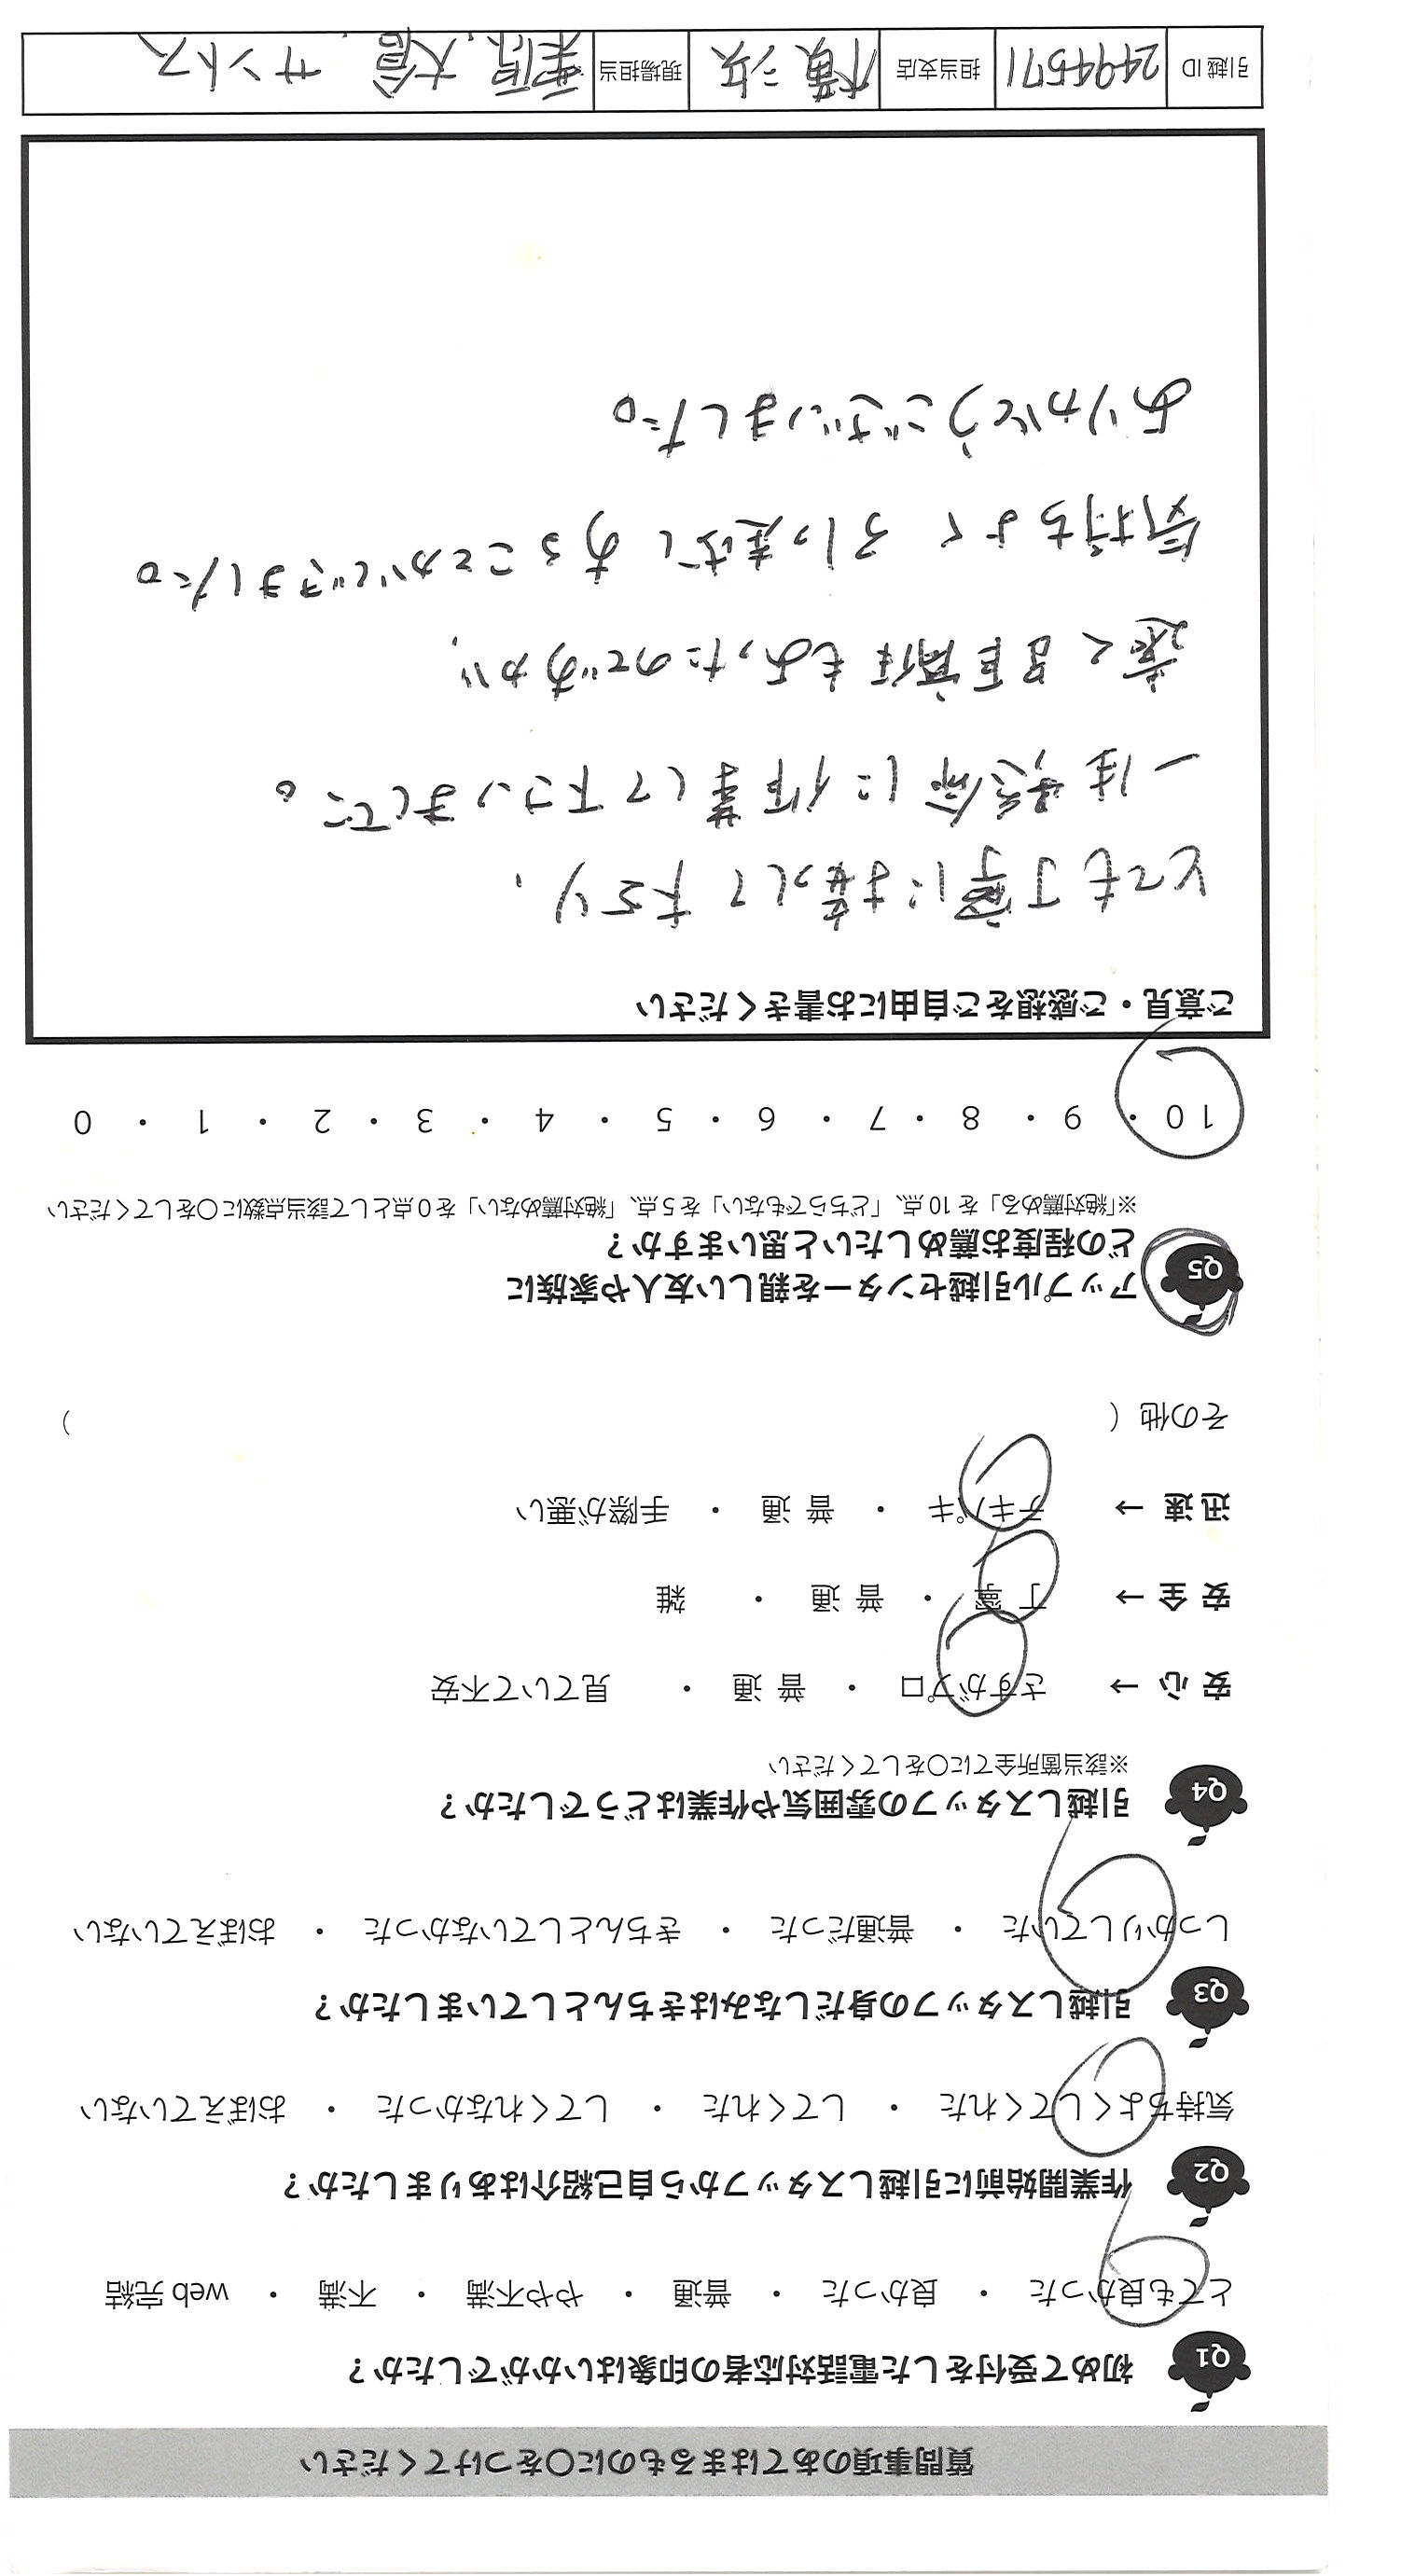 質問事項のあてはまるものに○をつけてください
Q1 初めて受付をした電話対応者の印象はいかがでしたか?
とても良かった ・ 良かった ・ 普通 ・ やや不満 ・ 不満 ・ web 完結
Q2 作業開始前に引越しスタッフから自己紹介はありましたか?
気持ちよくしてくれた ・ してくれた ・ してくれなかった ・ おぼえていない
Q3 引越しスタッフの身だしなみはきちんとしていましたか?
しっかりしていた ・ 普通だった ・ きちんとしていなかった ・ おぼえていない
Q4 引越しスタッフの雰囲気や作業はどうでしたか?
※該当箇所全てに○をしてください
安心 → さすがプロ ・ 普通 ・ 見ていて不安
安全 → 丁寧 ・ 普通 ・ 雑
迅速 → テキパキ ・ 普通 ・ 手際が悪い
その他 ( )
Q5 アップル引越センターを親しい友人や家族に
どの程度お薦めしたいと思いますか?
※「絶対薦める」を 10 点、「どちらでもない」を 5 点、「絶対薦めない」を 0 点として該当点数に○をしてください
10 ・ 9 ・ 8 ・ 7 ・ 6 ・ 5 ・ 4 ・ 3 ・ 2 ・ 1 ・ 0
ご意見・ご感想をご自由にお書きください
とても丁寧に接して下さり、
一生懸命に作業して下さいました。
遠く
気持ちよく引っ越しすることができました。
ありがとうございました。
引越 ID 2494571 担当支店 横浜 現場担当 栗原, 大倉, サントス